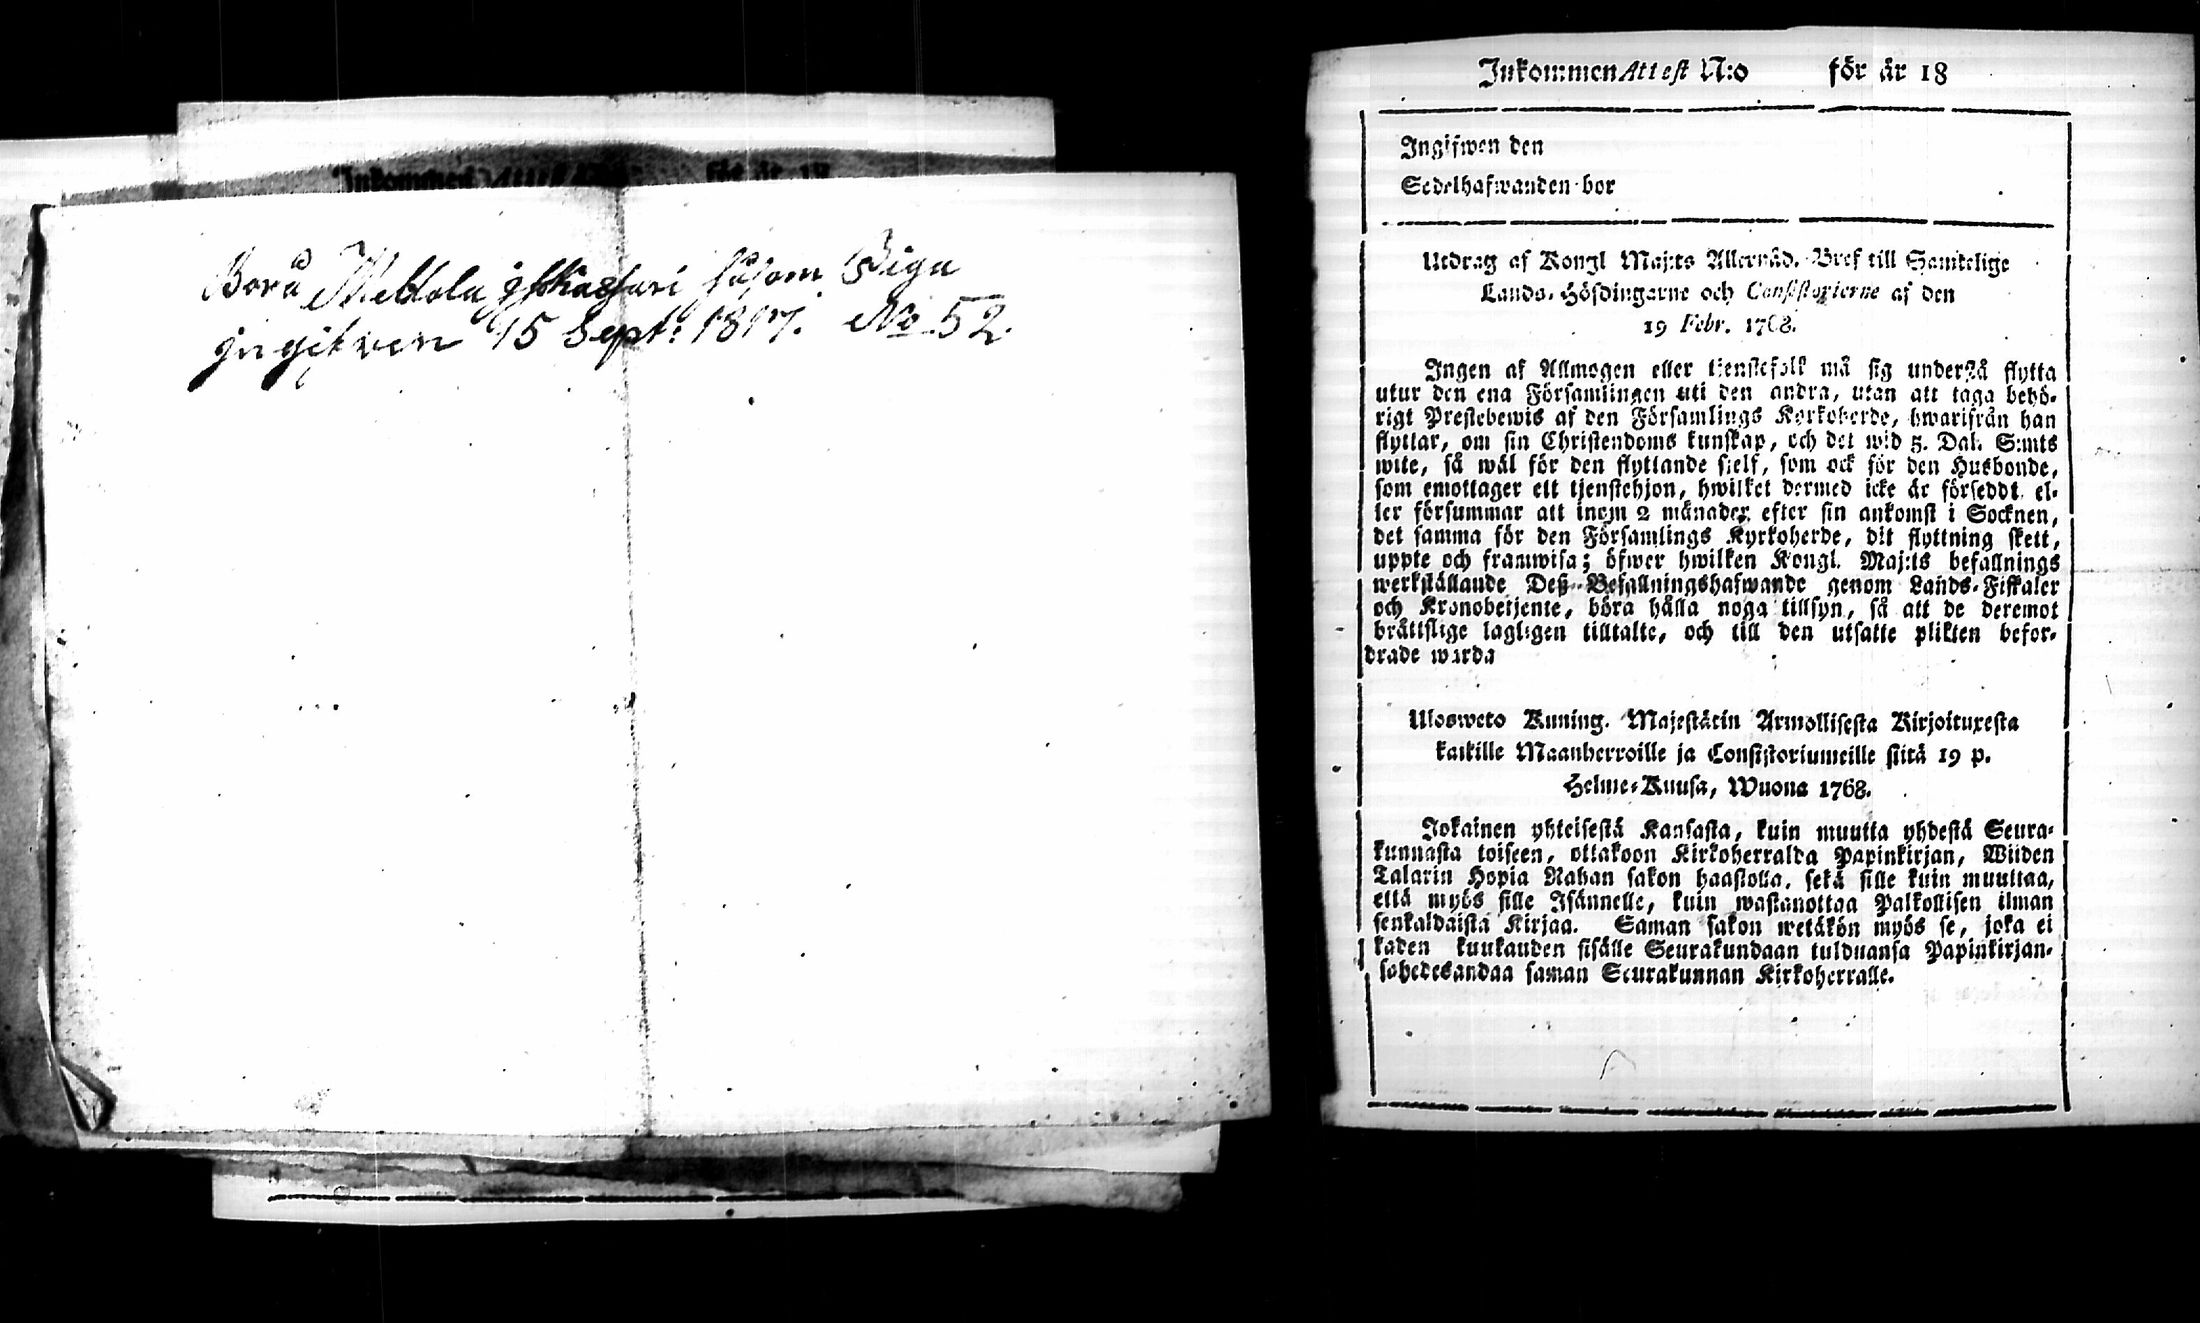 Inkommen Attest N:o för år 18
Bor å såsom Piga
ingifven 15 Sept: 1817. No 52.
Inkommen Attest N:o för år 18
Ingifwen den
Sedelhafwanden bor
Utdrag af Kongl Maj:ts Allernåd. Bref till Samtelige
Lands-Höfdingarne och Consistorierne af den
19 Febr. 1768.
Ingen af Allmogen eller tjenstefolk må sig understå flytta
utur den ena Församlingen uti den andra, utan att taga behö-
rigt Prestebewis af den Församlings Kyrkoherde, hwarifrån han
flyttar, om sin Christendoms kunskap, och det wid 5. Dal. S:mts
wite, så wäl för den flyttande sjelf, som ock för den Husbonde,
som emottager ett tjenstehjon, hwilket dermed icke är förseddt, el-
ler försummar att inom 2 månader efter sin ankomst i Socknen,
det samma för den Församlings Kyrkoherde, dit flyttning skett,
uppte och framwisa; öfwer hwilken Kongl. Maj:ts befallnings
werkställande Deß Befallningshafwande genom Lands-Fiskaler
och Kronobetjente, böra hålla noga tillsyn, så att de deremot
bråttslige lagligen tilltalte, och till den utsatte plikten befor-
drade warda
Ulosweto Kuning. Majestätin Armollisesta Kirjoituxesta
kaikille Maanherroille ja Consistoriumeille siitä 19 p.
Helme-Kuusa, Wuona 1768.
Jokainen yhteisestä Kansasta, kuin muutta yhdestä Seura-
kunnasta toiseen, ottakoon Kirkoherralda Papinkirjan, Wiiden
Talarin Hopia Rahan sakon haastolla, sekä sille kuin muuttaa,
että myös sille Isännelle, kuin wastanottaa Palkollisen ilman
senkaldaista Kirjaa. Saman sakon wetäkön myös se, joka ei
kaden kuukauden sisälle Seurakundaan tulduansa Papinkirjan-
sahedesandaa saman Seurakunnan Kirkoherralle.